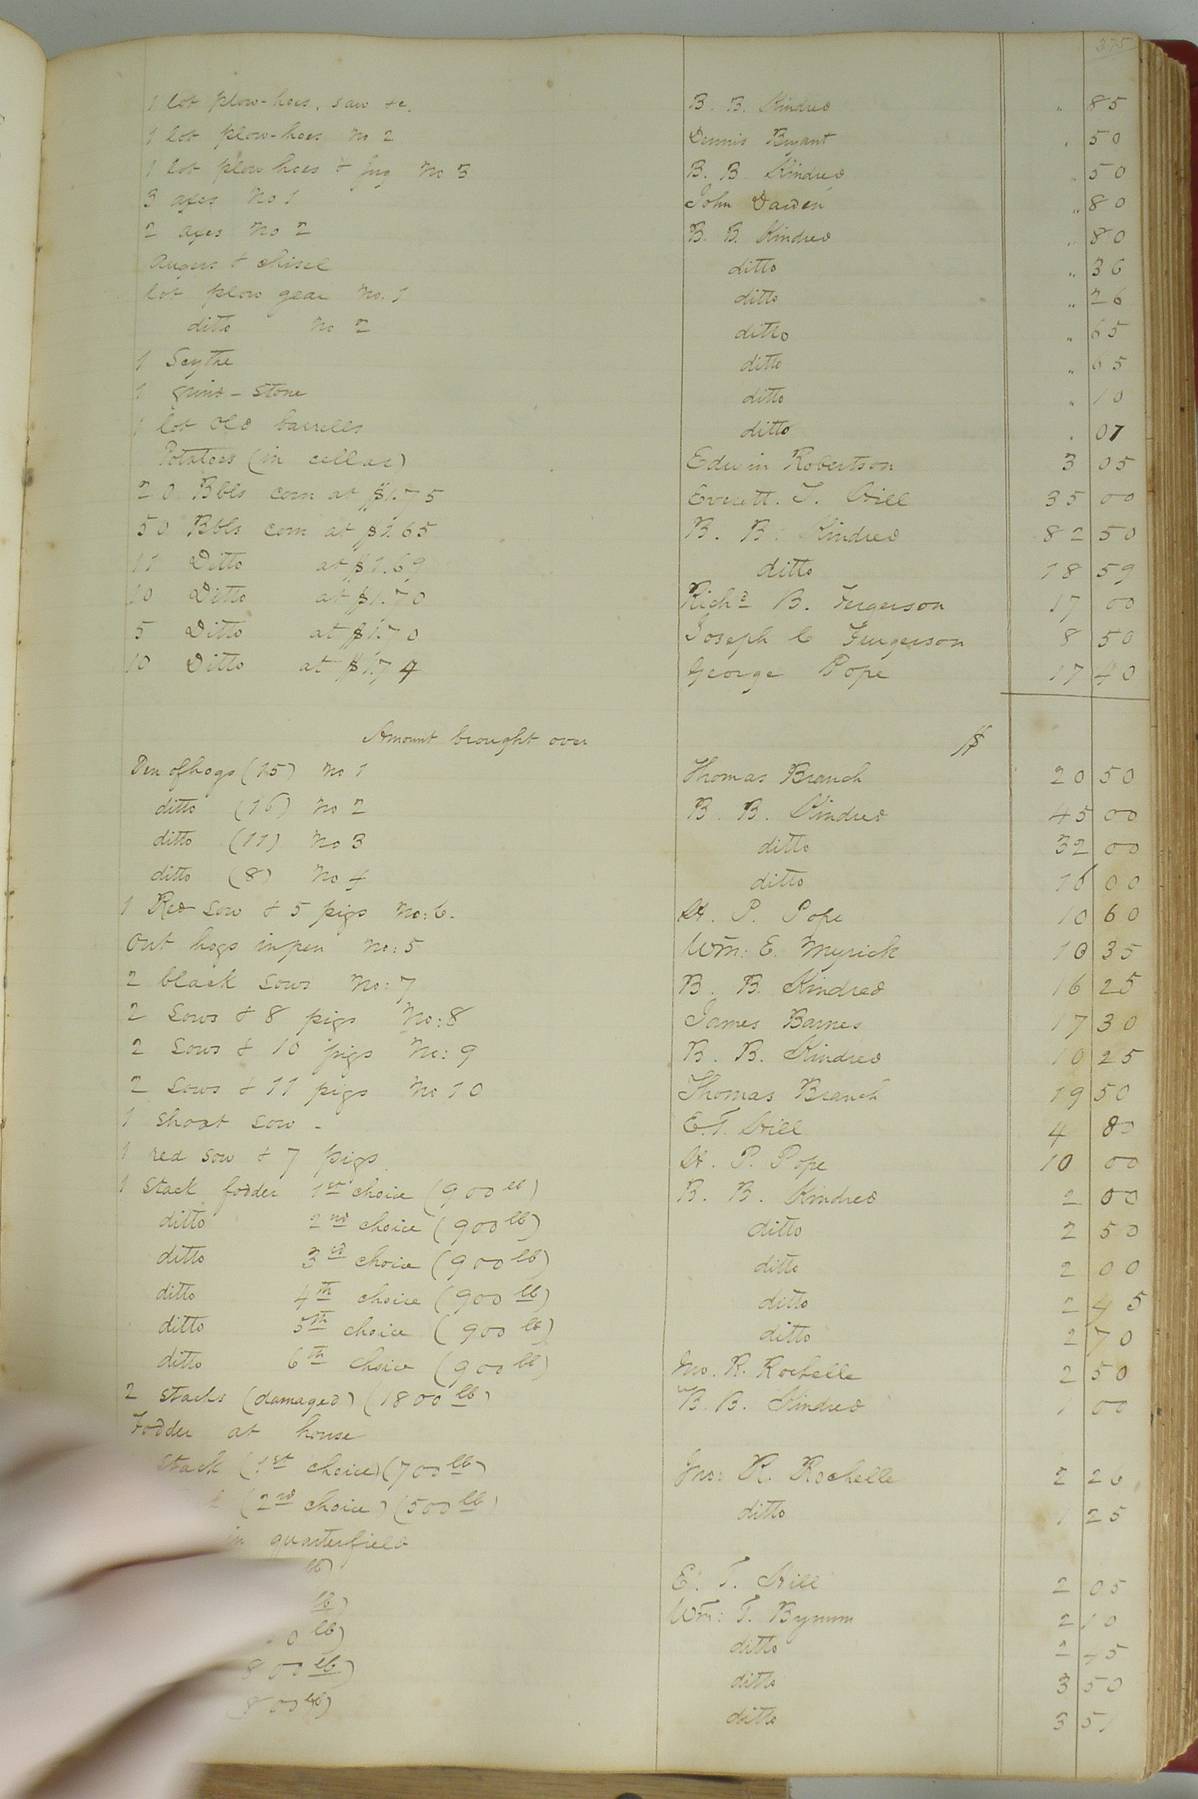 375
1 lot plow-hoes, saw &c. B. B. Kindred " 85
1 lot plow-hoes No 2 Dennis Bryant " 50
1 lot plow hoes & Jug No 3 B. B. Kindred " 50
3 axes No 1 John Darden " 80
2 axes No 2 B. B. Kindred " 80
Augers & chisel ditto " 36
lot plow gear No. 1 ditto " 26
ditto No 2 ditto " 65
1 Scythe ditto " 65
1 grind-stone ditto " 10
1 lot old barrells ditto " 07
Potatoes (in cellar) Edwin Robertson 3 05
20 Bbls corn at $1.75 Everett. T. Hill 35 00
50 Bbls corn at $1.65 B. B. Kindred 82 50
11 Ditto at $1.69 ditto 18 59
10 Ditto at $1.70 Richd B. Fergerson 17 00
5 Ditto at $1.70 Joseph C Furgerson 8 50
10 Ditto at $1.74 George Pope 17 40
Amount brought over $
Pen of hogs (15) No 1 Thomas Branch 20 50
ditto (16) No 2 B. B. Kindred 45 00
ditto (11) No 3 ditto 32 00
ditto (8) No 4 ditto 16 00
1 Red Sow & 5 pigs No: 6. H. P. Pope 10 60
Out hogs in pen No: 5 Wm: E. Myrick 10 35
2 black Sows No: 7 B. B. Kindred 16 25
2 Sows & 8 pigs No: 8 James Barnes 17 30
2 Sows & 10 pigs No: 9 B. B. Kindred 10 25
2 Sows & 11 pigs No 10 Thomas Branch 19 50
1 Shoat Sow - E. T. Hill 4 80
1 red Sow & 7 pigs H. P. Pope 10 00
1 Stack fodder 1st choice (900 lb) B. B. Kindred 2 00
ditto 2nd choice (900 lb) ditto 2 50
ditto 3rd choice (900 lb) ditto 2 00
ditto 4th choice (900 lb) ditto 2 45
ditto 5th choice (900 lb) ditto 2 70
ditto 6th choice (900 lb) Jno. R. Rochelle 2 50
2 Stacks (damaged) (1800 lb) B. B. Kindred 1 00
Fodder at house
Stack (1st choice) (700 lb) Jno: R. Rochelle 2 20
(2nd choice) (500 lb) ditto 1 25
in quarterfield
lb) E. T. Hill 2 05
lb) Wm: T. Bynum 2 10
0 lb) ditto 2 45
800 lb) ditto 3 50
800 lb) ditto 3 51